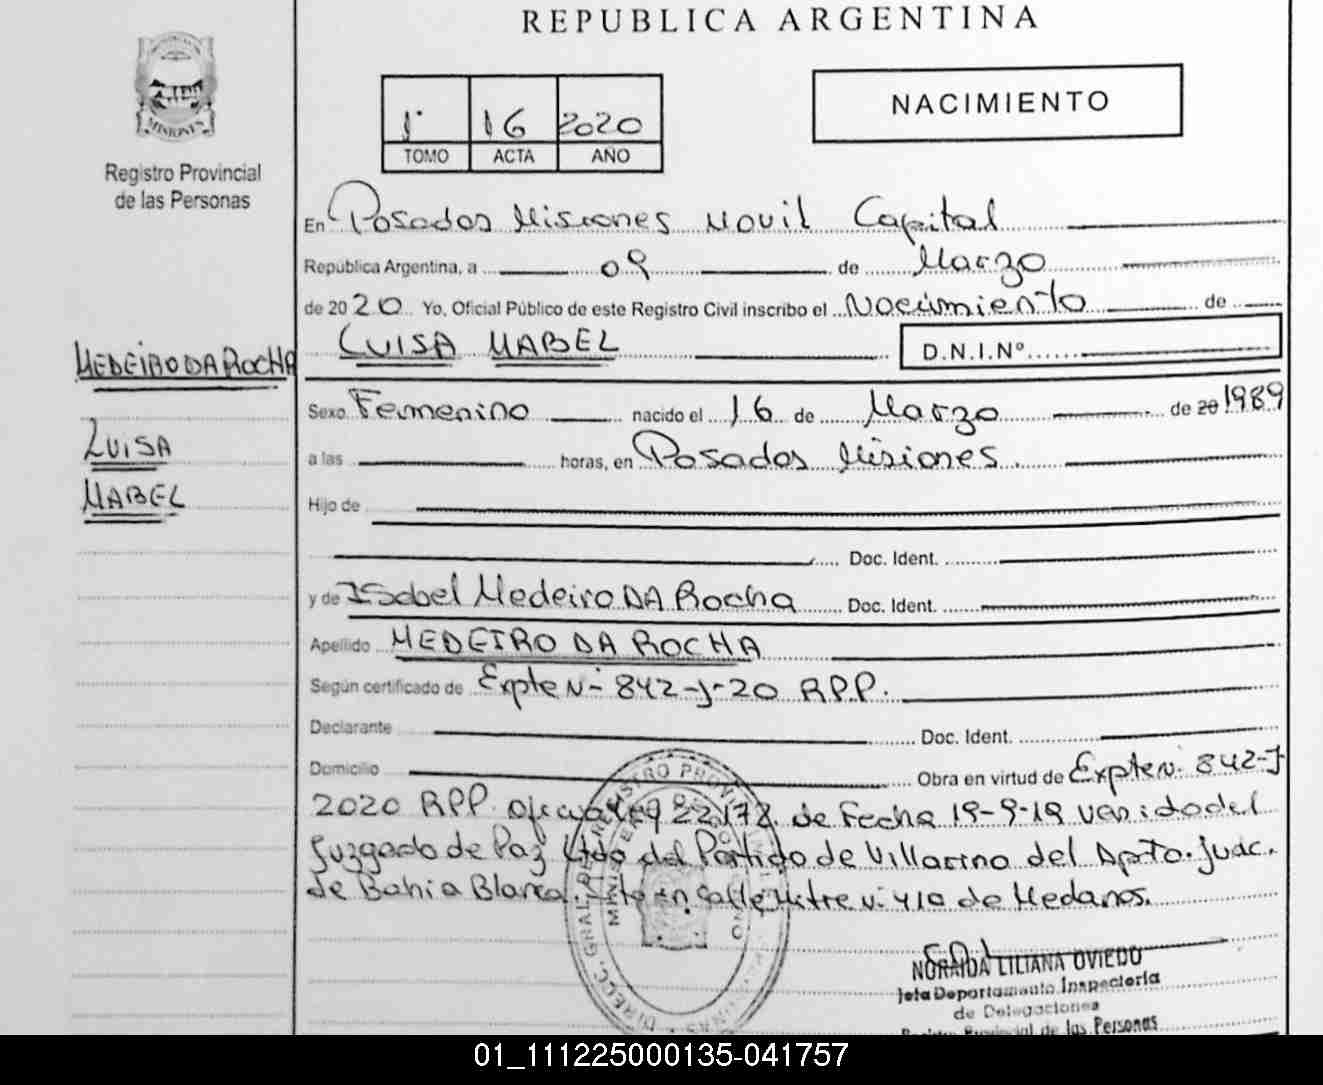 REPUBLICA ARGENTINA
MISIONES
Registro Provincial
de las Personas
1° 16 2020
TOMO ACTA AÑO
NACIMIENTO
En Posadas Misiones Movil Capital
República Argentina, a 09 de Marzo
de 2020 Yo, Oficial Público de este Registro Civil inscribo el Nacimiento de
LUISA MABEL D.N.I.Nº
MEDEIRO DA ROCHA
LUISA
MABEL
Sexo Femenino nacido el 16 de Marzo de 20 1989
a las horas, en Posadas Misiones.
Hijo de
Doc. Ident.
y de Isabel Medeiro DA Rocha Doc. Ident.
Apellido MEDEIRO DA ROCHA
Según certificado de Expte N- 842-J-20 RPP.
Declarante Doc. Ident.
Domicilio Obra en virtud de Expte N. 842-J
2020 RPP. de Fecha 19-9-19 venido del
Juzgado de Paz Ltdo del Partido de Villarino del Dpto. Judc.
de Bahia Blanca. Sito en Calle Mitre N. 410 de Medanos.
NORAIDA LILIANA OVIEDO
Jefa Departamento Inspectoria
de Delegaciones
Registro Provincial de las Personas
01_111225000135-041757